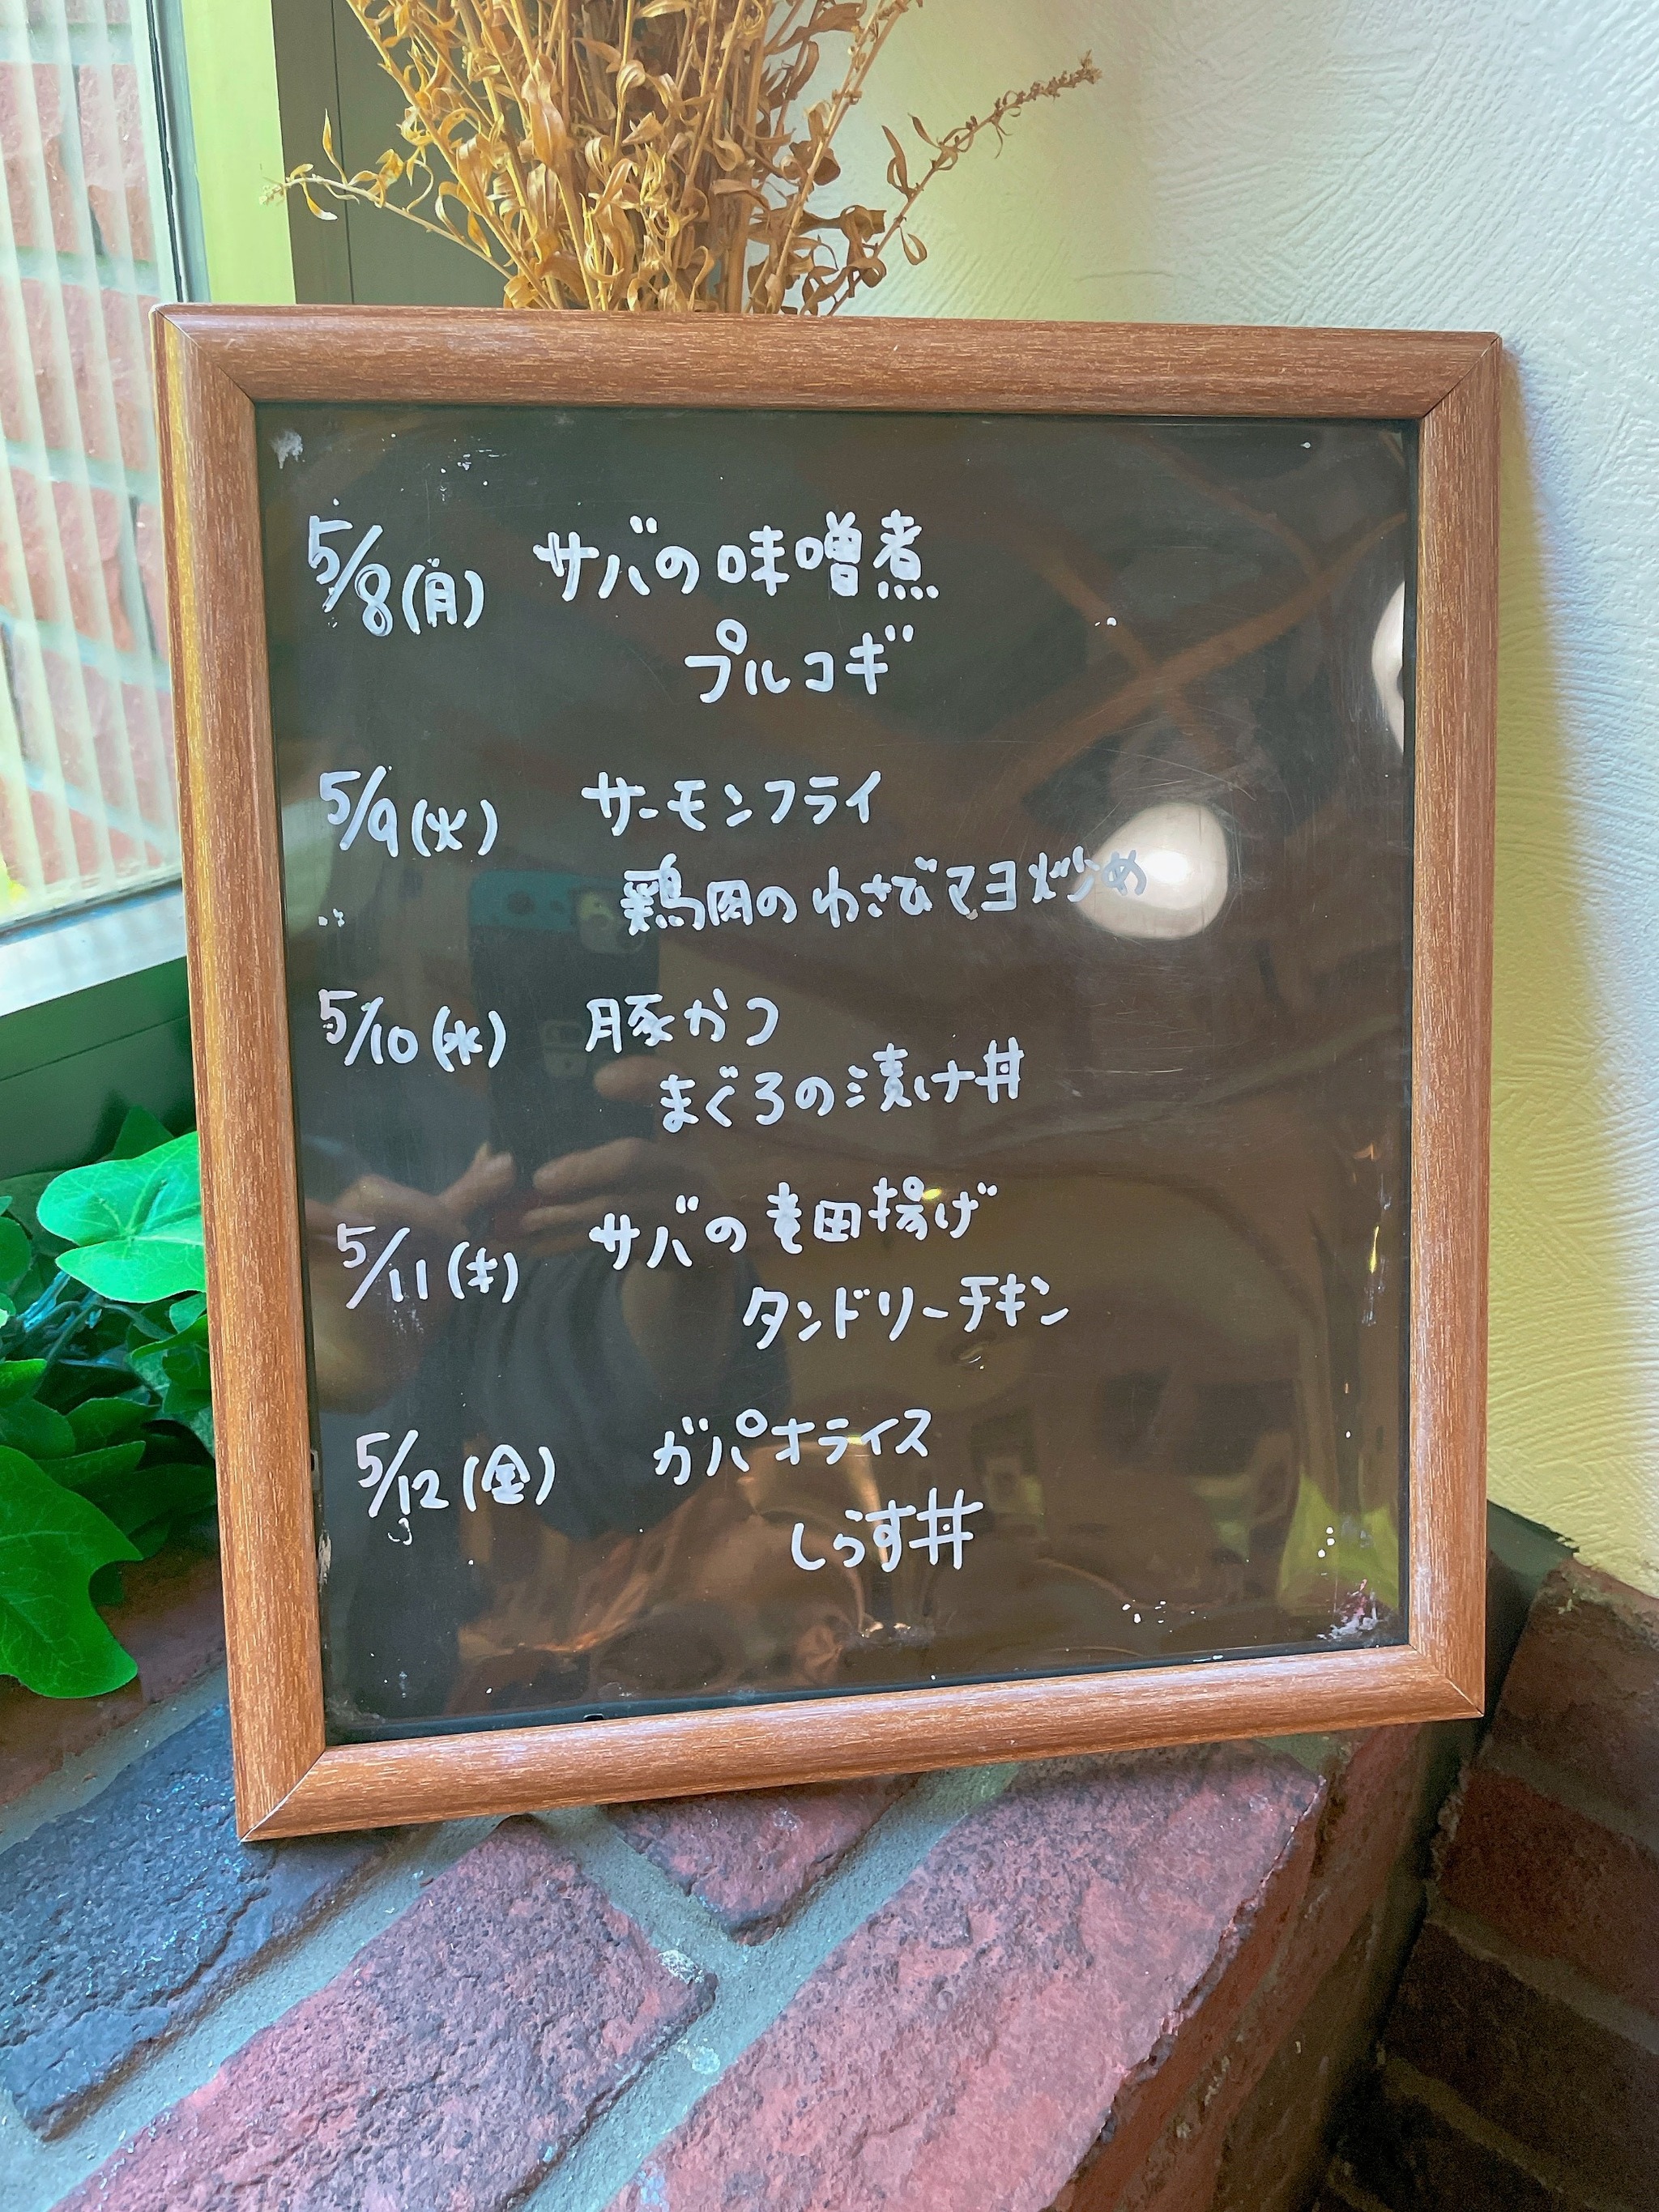 5/8(月) サバの味噌煮
プルコギ
5/9(火) サーモンフライ
鶏肉のわさびマヨ炒め
5/10(水) 豚かつ
まぐろの漬け丼
5/11(木) サバの竜田揚げ
タンドリーチキン
5/12(金) ガパオライス
しらす丼